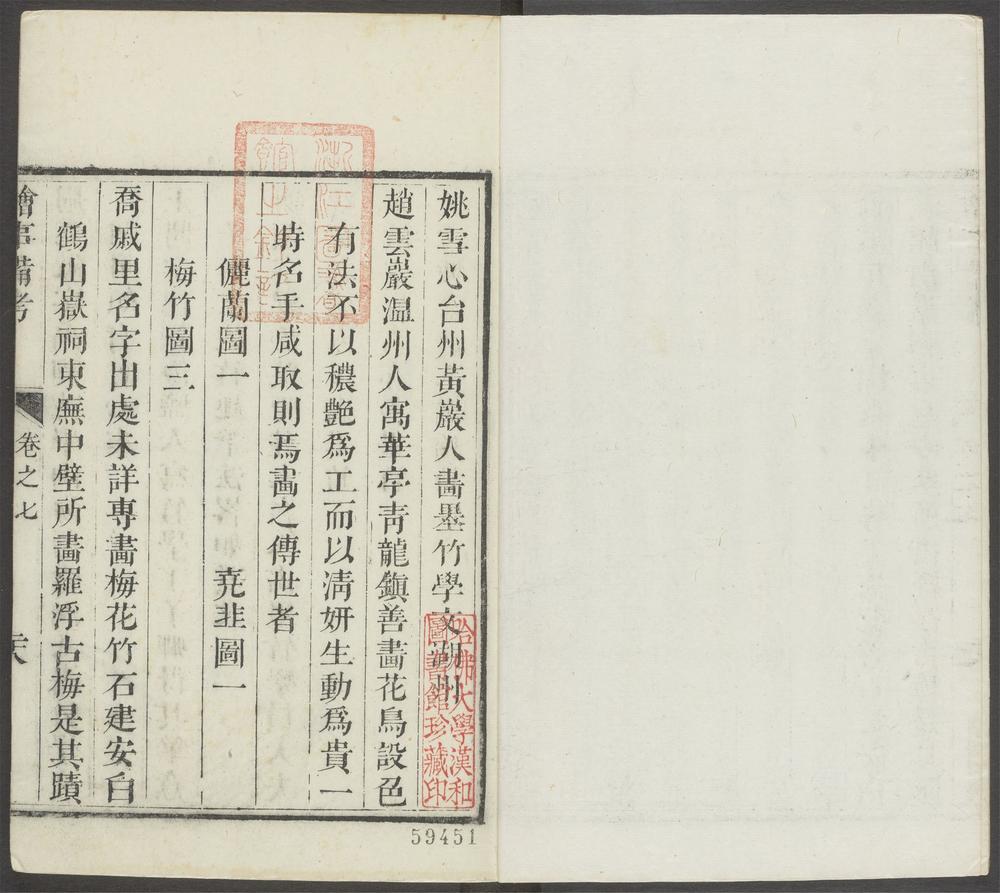 姚雪心台州黃巖人畵墨竹學文湖州
趙雲巖温州人寓華亭靑龍鎭善畵花鳥設色
有法不以穠艶爲工而以淸妍生動爲貴一
時名手咸取則焉畵之傳世者
儷蘭圖一 堯韭圖一
梅竹圖三
喬戚里名字出處未詳專畵梅花竹石建安白
鶴山嶽祠東廡中壁所畵羅浮古梅是其蹟
繪事備考
卷之七
哈佛大學漢和
圖書館珍藏印
59451